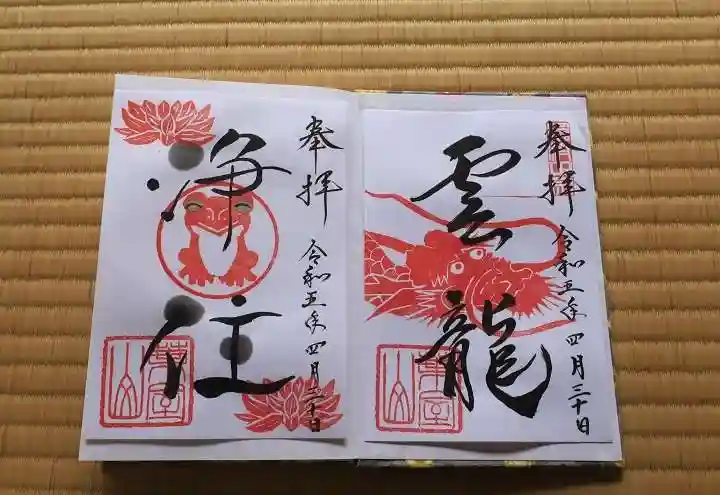 奉拝
雲龍
令和五年四月三十日
奉拝
浄住
令和五年四月三十日